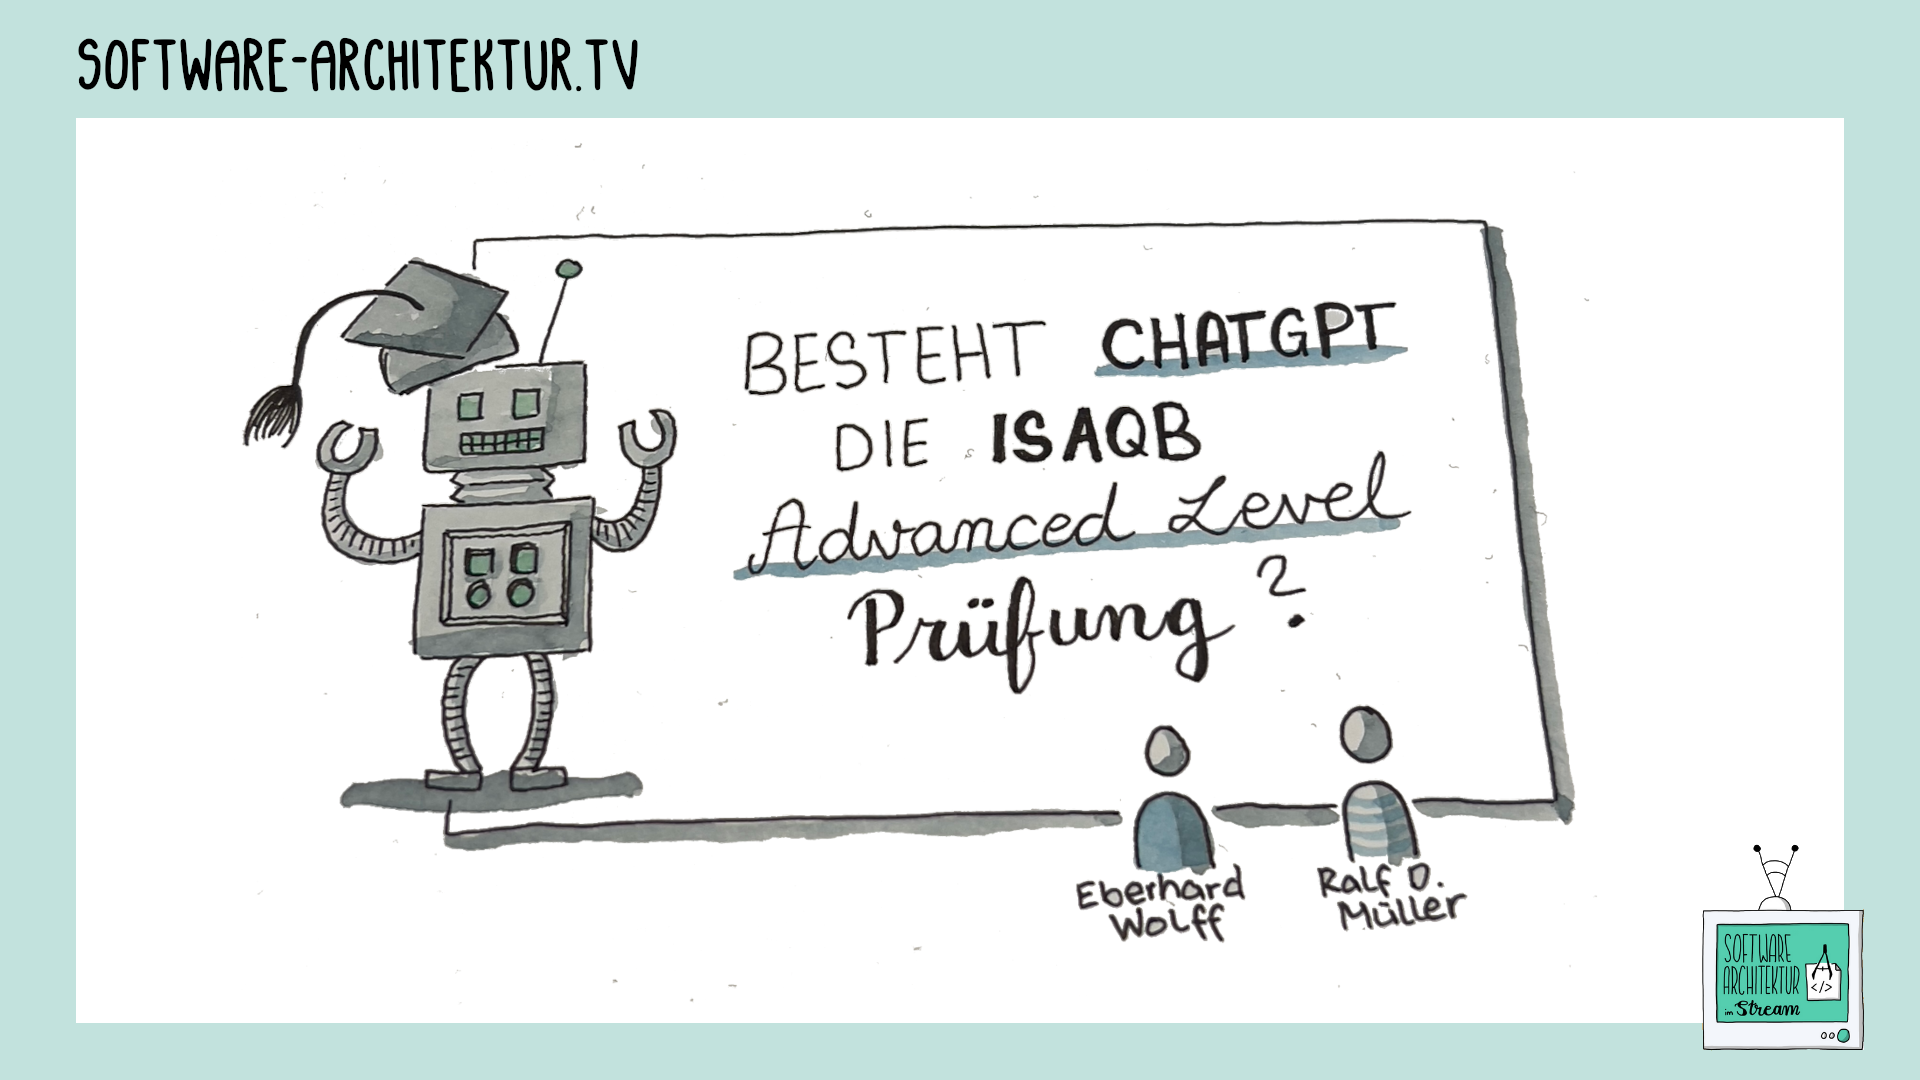 SOFTWARE-ARCHITEKTUR.TV
BESTEHT CHATGPT
DIE ISAQB
Advanced Level
Prüfung?
Eberhard
Wolff
Ralf D.
Müller
SOFTWARE
ARCHITEKTUR
im Stream
</>